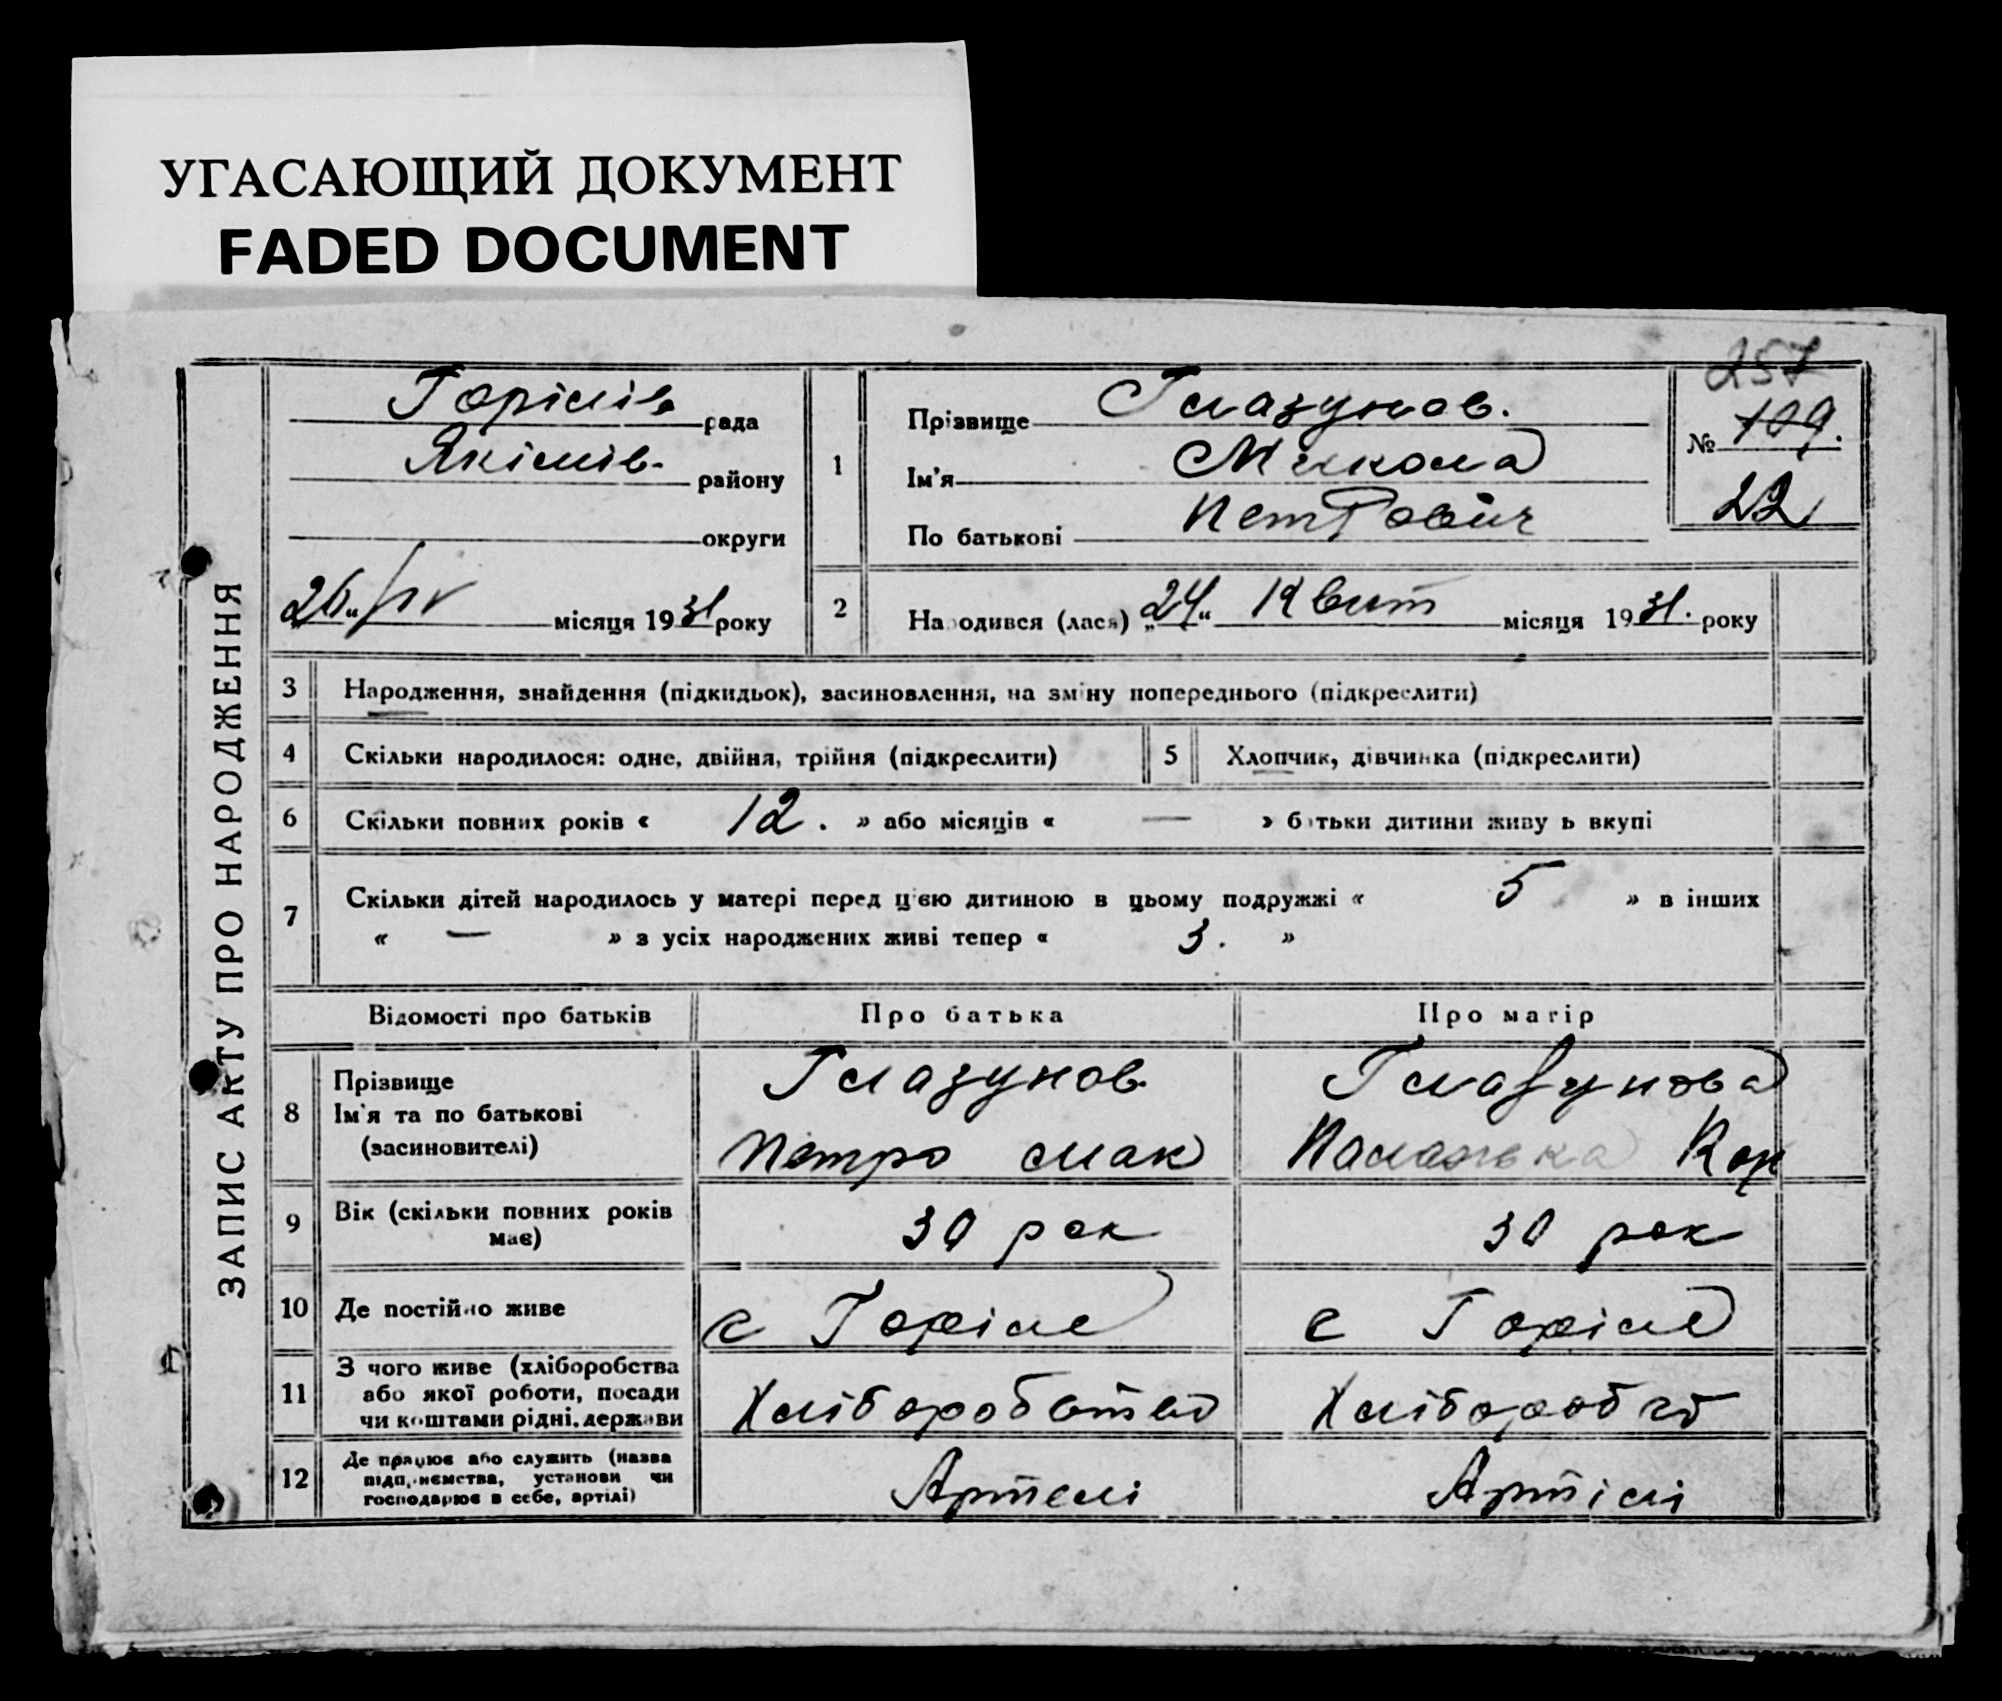 УГАСАЮЩИЙ ДОКУМЕНТ
FADED DOCUMENT
ЗАПИС АКТУ ПРО НАРОДЖЕННЯ
Горілів рада
Якімів. району
округи
26 "IV місяця 1931 року
1
Прізвище Глазунов.
Ім'я Микола
По батькові Петрович
257
№ 109.
22
2 Народився (лася) „24“ Квит місяця 1931. року
3 Народження, знайдення (підкидьок), засиновлення, на зміну попереднього (підкреслити)
4 Скільки народилося: одне, двійня, трійня (підкреслити) 5 Хлопчик, дівчинка (підкреслити)
6 Скільки повних років « 12. » або місяців « — » батьки дитини живуть вкупі
7 Скільки дітей народилось у матері перед цією дитиною в цьому подружжі « 5 » в інших
« — » з усіх народжених живі тепер « 3. »
Відомості про батьків Про батька Про матір
8 Прізвище
Ім'я та по батькові
(засиновителі)
Глазунов
Петро
Глазунова
Паланька Кор
9 Вік (скільки повних років
має)
30 рок 30 рок
10 Де постійно живе с Горіле с Горіле
11 З чого живе (хліборобства
або якої роботи, посади
чи коштами рідні, держави
Хліборобство
12 Де працює або служить (назва
підприємства, установи чи
господарює в себе, артілі)
Артелі Артілі